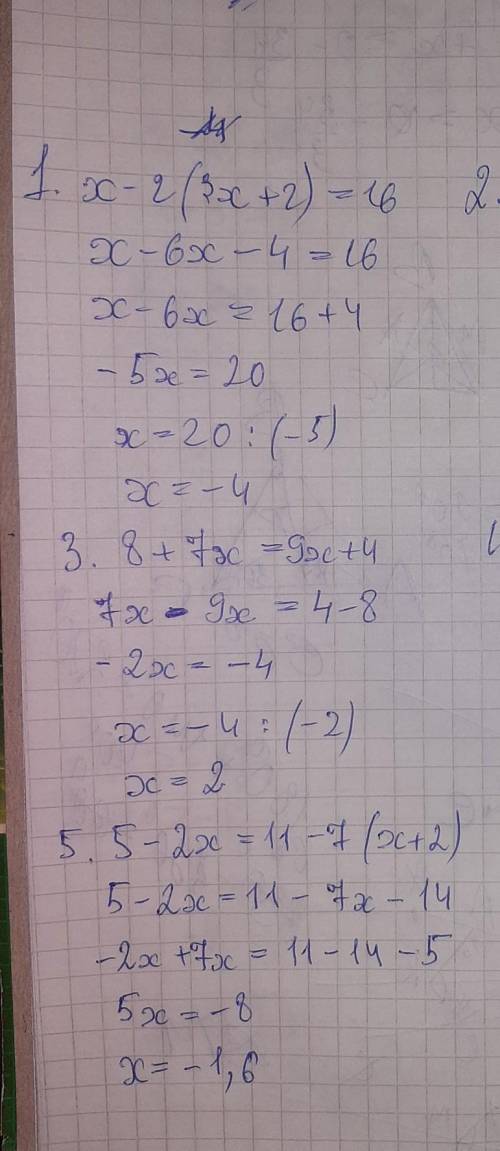 1. x - 2(3x+2) = 16
2.
x - 6x - 4 = 16
x - 6x = 16 + 4
- 5x = 20
x = 20 : (-5)
x = - 4
3. 8 + 7x = 9x + 4
7x - 9x = 4 - 8
- 2x = - 4
x = - 4 : (-2)
x = 2
5. 5 - 2x = 11 - 7(x+2)
5 - 2x = 11 - 7x - 14
-2x + 7x = 11 - 14 - 5
5x = - 8
x = - 1,6